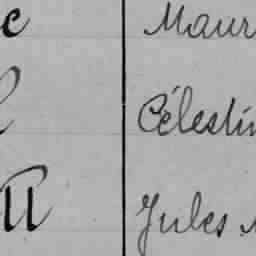 e Maur
Célestin
Jules